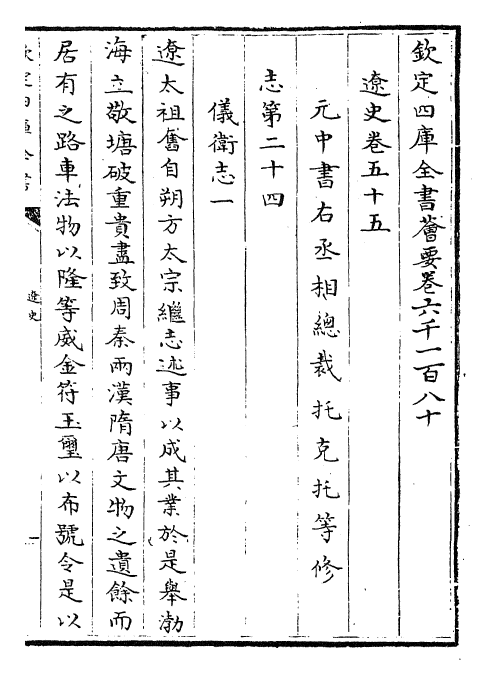 欽定四庫全書薈要卷六千一百八十
遼史卷五十五
元中書右丞相總裁托克托等修
志第二十四
儀衛志一
遼太祖奮自朔方太宗繼志述事以成其業於是舉渤
海立敬塘破重貴盡致周秦兩漢隋唐文物之遺餘而
居有之路車法物以隆等威金符玉璽以布號令是以
欽定四庫全書
遼史
一